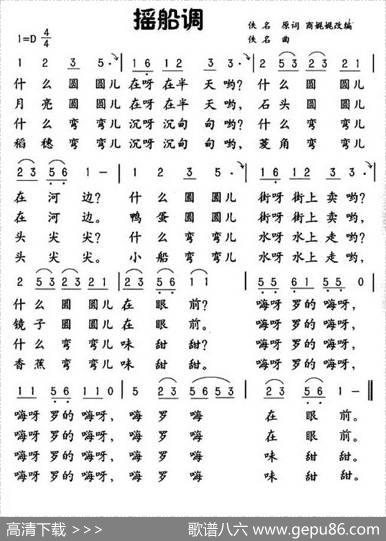 摇船调
1=D 4/4
佚名 原词 商娓娓改编
佚名 曲
1 2 3 5· | 1 6 1 2 3 5· | 1 2 5 3 2 3 2 1 |
什么圆圆儿在呀在半天哟？什么圆圆儿
月亮圆圆儿在呀在半天哟，石头圆圆儿
什么弯弯儿沉呀沉甸甸哟？什么弯弯儿
稻穗弯弯儿沉呀沉甸甸哟，菱角弯弯儿
2 3 5 6 1 - | 1 2 3 5· | 1 6 1 2 3 5· |
在河边？什么圆圆儿街呀街上卖哟？
在河边。鸭蛋圆圆儿街呀街上卖哟，
头尖尖？什么弯弯儿水呀水上走哟？
头尖尖。小船弯弯儿水呀水上走哟，
2 5 3 2 3 2 1 | 2 3 5 6 1 1 | 5 5 6 1 5 5 0 |
什么圆圆儿在眼前？嗨呀罗的嗨呀，
镜子圆圆儿在眼前。嗨呀罗的嗨呀，
什么弯弯儿味甜甜？嗨呀罗的嗨呀，
香蕉弯弯儿味甜甜。嗨呀罗的嗨呀，
1 1 5 6 1 1 0 | 5 2 3 5 6 5 3 | 2 3 5 6 1 -
嗨呀罗的嗨呀，嗨罗嗨在眼前。
嗨呀罗的嗨呀，嗨罗嗨在眼前。
嗨呀罗的嗨呀，嗨罗嗨味甜甜。
嗨呀罗的嗨呀，嗨罗嗨味甜甜。
高清下载 >>> 歌谱八六 www.gepu86.com